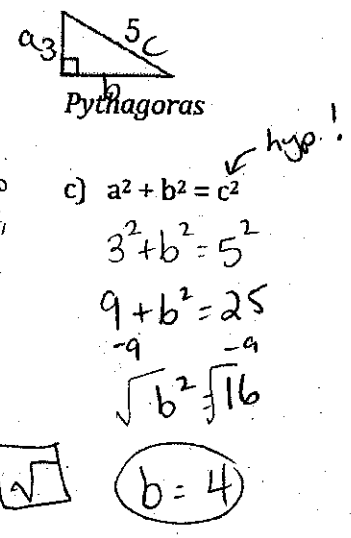 a 3 5 c
b
Pythagoras
hyp.!
c) a² + b² = c²
3² + b² = 5²
9 + b² = 25
-9 -9
√b² = √16
√ b = 4